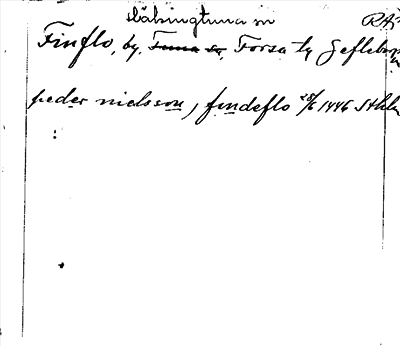 Hälsingtuna sn RA
Finflo, by, Tuna sn, Forsa tg Gefleborgs
peder nielsson, findeflo 25/6 1446 Sthlm